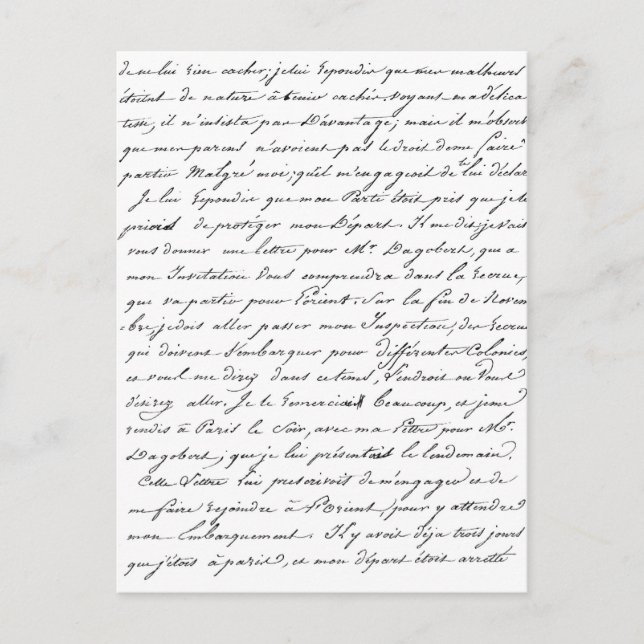 de ne lui rien cacher; je lui repondis que mes malheurs
étoient de nature à tenir cachés. voyant ma délica
tesse, il n'insista pas Davantage; mais il m'observ
que mes parens n'avoient pas le droit de me faire
partir Malgré moi; qu'il m'engageoit de lui déclar
Je lui repondis que mon Parti étoit pris que je le
priois de protéger mon Départ. Il me dit; je vais
vous donner une lettre pour Mr. Dagobert, qui a
mon Invitation vous comprendra dans la recrue,
qui va partir pour L'orient. Sur la fin de Novem
=bre, je dois aller passer mon Inspection, des recrues
qui doivent S'embarquer pour différentes Colonies,
et vous me direz dans ce tems, L'endroit ou Vous
désirez aller. Je le remerciois Beaucoup, et je me
rendis à Paris le Soir, avec ma Lettre pour Mr.
Dagobert; que je lui présentois le lendemain.
Cette Lettre Lui prescrivoit de m'engager et de
me faire rejoindre à L'Orient, pour y attendre
mon Embarquement. Il y avoit déja trois jours
que j'étois à paris, et mon départ étoit arretté